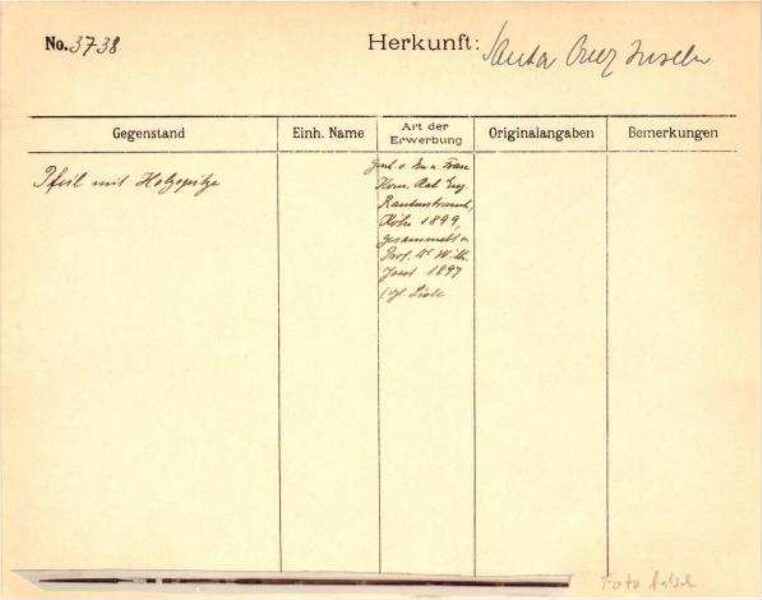 No. 3738
Herkunft: Santa Cruz Inseln
Gegenstand
Einh. Name
Art der
Erwerbung
Originalangaben
Bemerkungen
Pfeil mit Holzspitze
Frau
Kom. Rat Eug.
Rautenstrauch,
Köln 1899,
gesammelt v.
Prof. Dr Wilh.
Joest 1897
Foto falsch